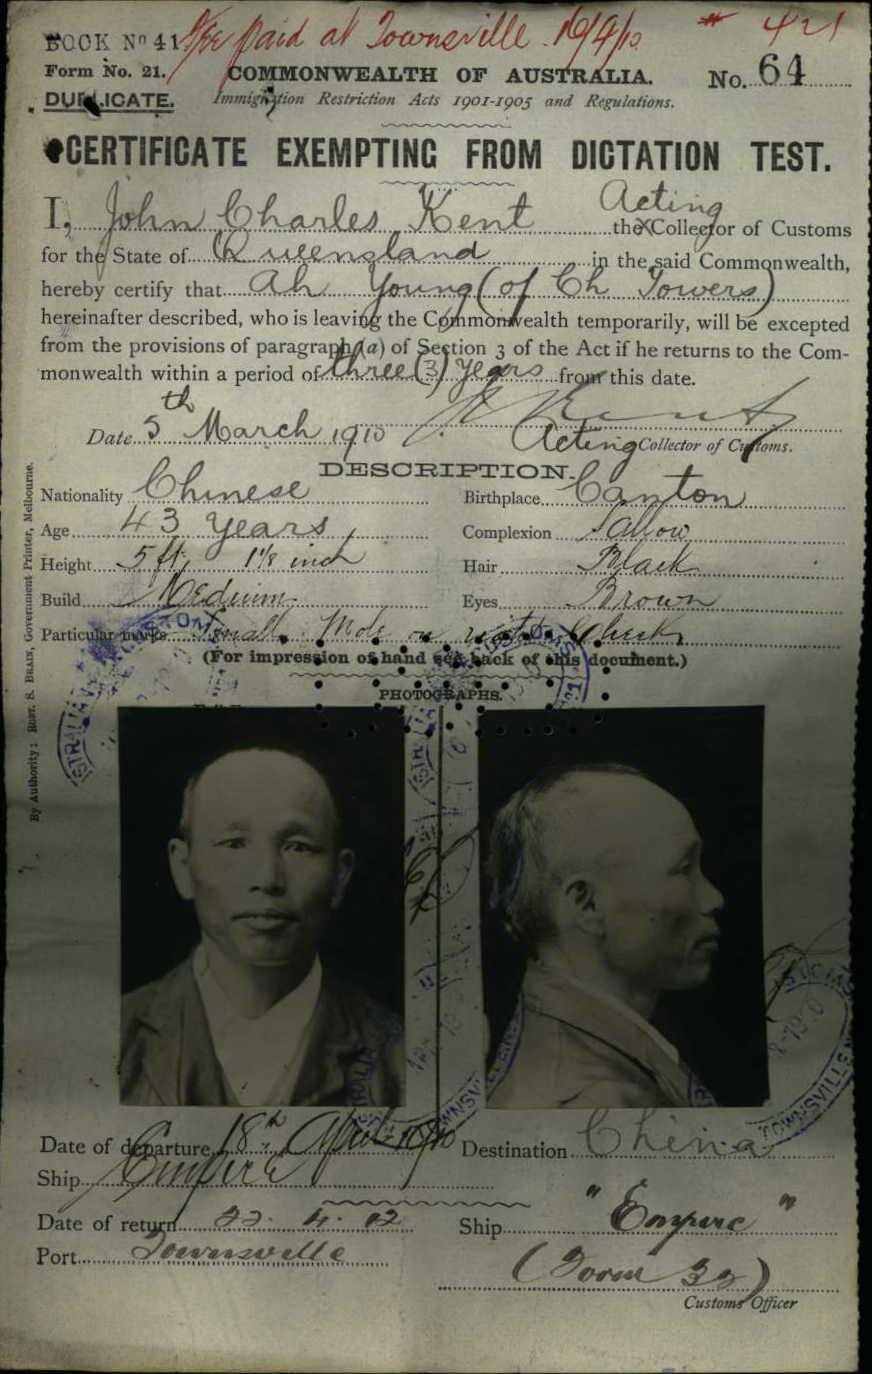 BOOK No 41 Fee paid at Townsville 16/4/10 421
Form No. 21. COMMONWEALTH OF AUSTRALIA. No. 64
DUPLICATE. Immigration Restriction Acts 1901-1905 and Regulations.
CERTIFICATE EXEMPTING FROM DICTATION TEST.
Acting
I, John Charles Kent the Collector of Customs
for the State of Queensland in the said Commonwealth,
hereby certify that Ah Young (of Ch Towers)
hereinafter described, who is leaving the Commonwealth temporarily, will be excepted
from the provisions of paragraph (a) of Section 3 of the Act if he returns to the Com-
monwealth within a period of three (3) years from this date.
Date 5th March 1910 Acting Collector of Customs.
DESCRIPTION.
Nationality Chinese Birthplace Canton
Age 43 years Complexion Sallow
Height 5 ft, 1 1/8 inch Hair Black
Build Medium Eyes Brown
Particular marks Small Mole on right Cheek
(For impression of hand see back of this document.)
PHOTOGRAPHS.
By Authority: ROBT. S. BRAIN, Government Printer, Melbourne.
TOWNSVILLE
Date of departure 18th April 1910 Destination China
Ship Empire
Date of return 22. 4. 12 Ship "Empire"
Port Townsville (Form 32)
Customs Officer